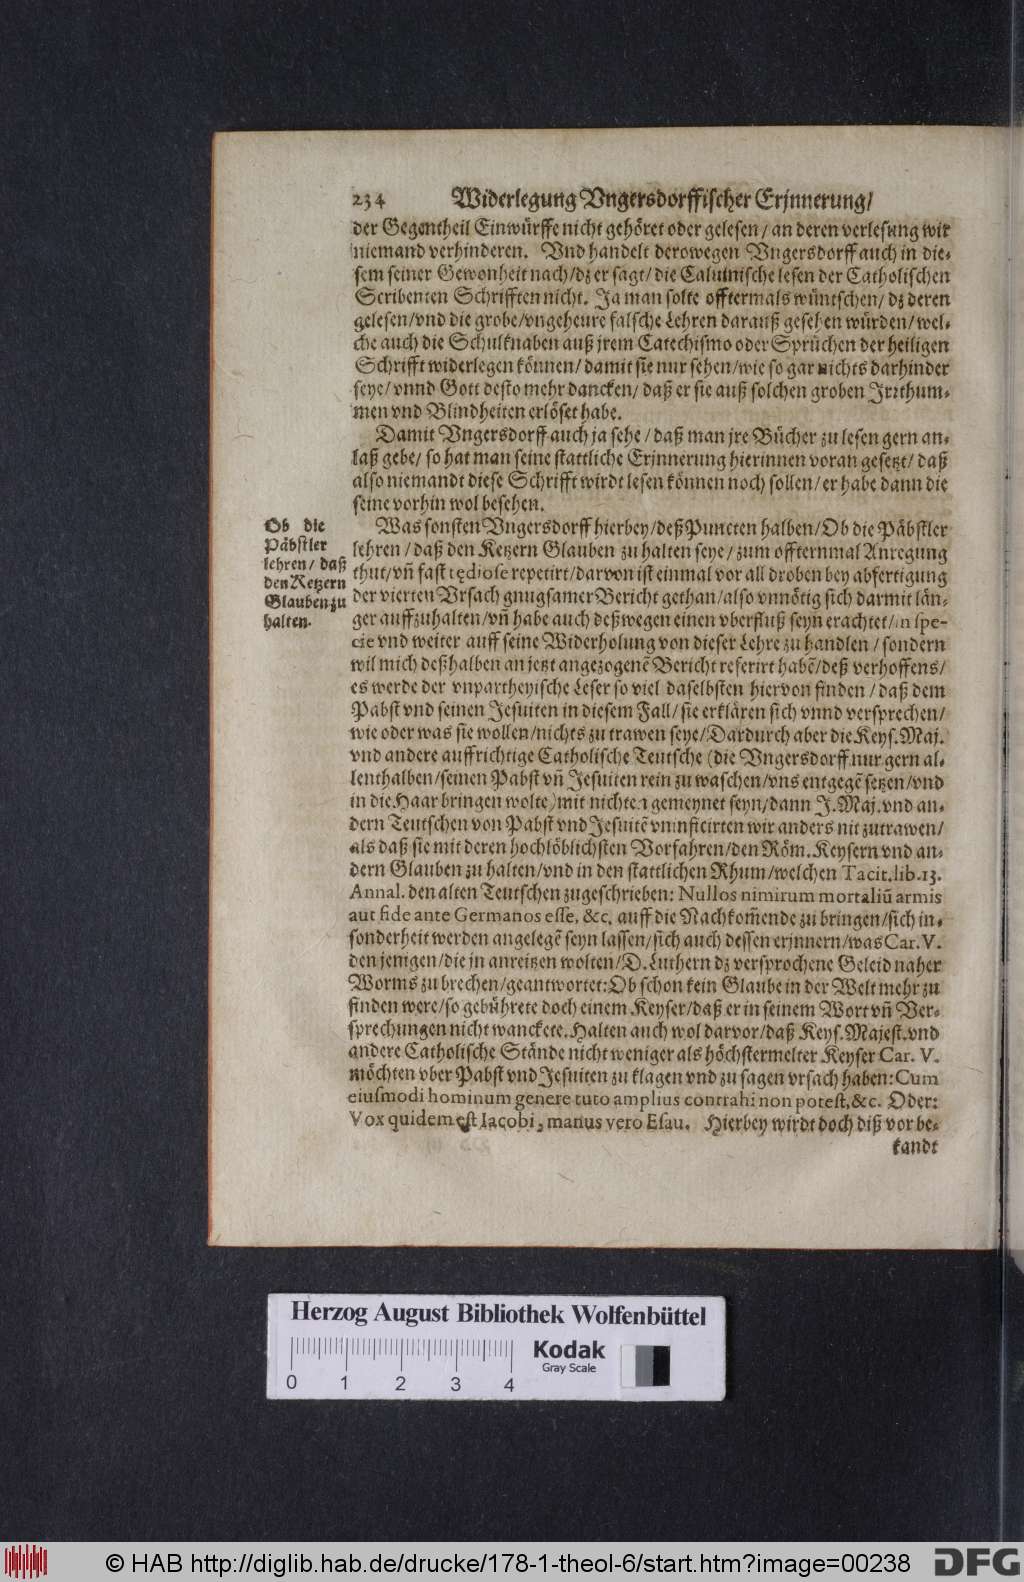 234 Widerlegung Vngersdorffischer Erjnnerung/
der Gegentheil Einwürffe nicht gehöret oder gelesen/ an deren verlesung wir
niemand verhinderen. Vnd handelt derowegen Vngersdorff auch in die-
sem seiner Gewonheit nach/ dz er sagt/ die Caluinische lesen der Catholischen
Scribenten Schrifften nicht. Ja man solte offtermals wüntschen/ dz deren
gelesen/ vnd die grobe/ vngeheure falsche Lehren darauß gesehen würden/ wel-
che auch die Schulknaben auß jrem Catechismo oder Sprüchen der heiligen
Schrifft widerlegen können/ damit sie nur sehen/ wie so gar nichts darhinder
seye/ vnnd Gott desto mehr dancken/ daß er sie auß solchen groben Jrrthum-
men vnd Blindheiten erlöset habe.
Damit Vngersdorff auch ja sehe/ daß man jre Bücher zu lesen gern an-
laß gebe/ so hat man seine stattliche Erjnnerung hierinnen voran gesetzt/ daß
also niemandt diese Schrifft wirdt lesen können noch sollen/ er habe dann die
seine vorhin wol besehen.
Ob die
Päbstler
lehren/ daß
den Ketzern
Glauben zu
halten.
Was sonsten Vngersdorff hierbey/ deß Puncten halben/ Ob die Päbstler
lehren/ daß den Ketzern Glauben zu halten seye/ zum offternmal Anregung
thut/ vñ fast tędiose repetirt/ darvon ist einmal vor all droben bey abfertigung
der vierten Vrsach gnugsamer Bericht gethan/ also vnnötig sich darmit län-
ger auffzuhalten/ vñ habe auch deßwegen einen vberfluß seyn erachtet/ in spe-
cie vnd weiter auff seine Widerholung von dieser Lehre zu handlen/ sondern
wil mich deßhalben an jetzt angezogenẽ Bericht referirt habẽ/ deß verhoffens/
es werde der vnpartheyische Leser so viel daselbsten hiervon finden/ daß dem
Pabst vnd seinen Jesuiten in diesem Fall/ sie erklären sich vnnd versprechen/
wie oder was sie wollen/ nichts zu trawen seye/ Dardurch aber die Keys. Maj.
vnd andere auffrichtige Catholische Teutsche (die Vngersdorff nur gern al-
lenthalben/ seinen Pabst vñ Jesuiten rein zu waschen/ vns entgegẽ setzen/ vnd
in die Haar bringen wolte) mit nichten gemeynet seyn/ dann J. Maj. vnd an-
dern Teutschen von Pabst vnd Jesuitẽ vninficirten wir anders nit zutrawen/
als daß sie mit deren hochlöblichsten Vorfahren/ den Röm. Keysern vnd an-
dern Glauben zu halten/ vnd in den stattlichen Rhum/ welchen Tacit. lib. 13.
Annal. den alten Teutschen zugeschrieben: Nullos nimirum mortaliũ armis
aut fide ante Germanos esse, &c. auff die Nachkom̃ende zu bringen/ sich in-
sonderheit werden angelegẽ seyn lassen/ sich auch dessen erjnnern/ was Car. V.
den jenigen/ die jn anreitzen wolten/ D. Luthern dz versprochene Geleid naher
Worms zu brechen/ geantwortet: Ob schon kein Glaube in der Welt mehr zu
finden were/ so gebührete doch einem Keyser/ daß er in seinem Wort vñ Ver-
sprechungen nicht wanckete. Halten auch wol darvor/ daß Keys. Majest. vnd
andere Catholische Stände nicht weniger als höchstermelter Keyser Car. V.
möchten vber Pabst vnd Jesuiten zu klagen vnd zu sagen vrsach haben: Cum
eiusmodi hominum genere tuto amplius contrahi non potest, &c. Oder:
Vox quidem est Iacobi, manus vero Esau. Hierbey wirdt doch diß vor be-
kandt
Herzog August Bibliothek Wolfenbüttel
Kodak
Gray Scale
0 1 2 3 4
© HAB http://diglib.hab.de/drucke/178-1-theol-6/start.htm?image=00238
DFG